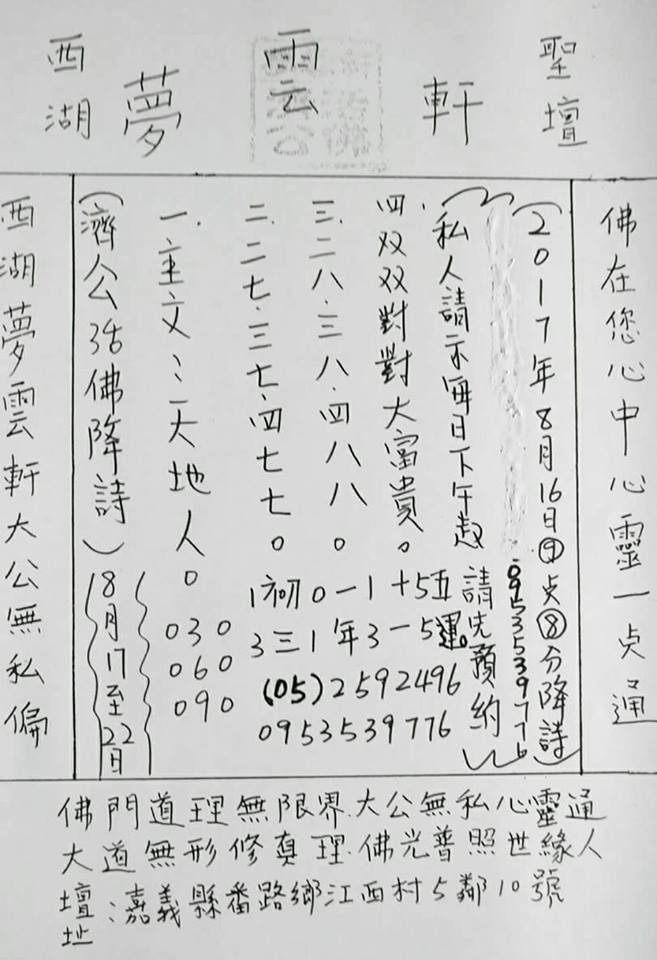 西湖夢雲軒聖壇
佛在您心中心靈一点通
(2017年8月16日⑨点⑧分降詩)
0953539776
私人請示每日下午起請先預約
四双双對對大富貴。
三.二八.三八.四八八。
二.二七.三七.四七七。
一.主文:三天地人。
1初0一1十5五
3三1年3一5運。
(05)2592496
0953539776
030
060
090
(濟公活佛降詩)
8月17至22日
西湖夢雲軒大公無私偏
佛門道理無限界.大公無私心靈通
大道無形修真理.佛光普照世緣人
壇址:嘉義縣番路鄉江西村5鄰10號